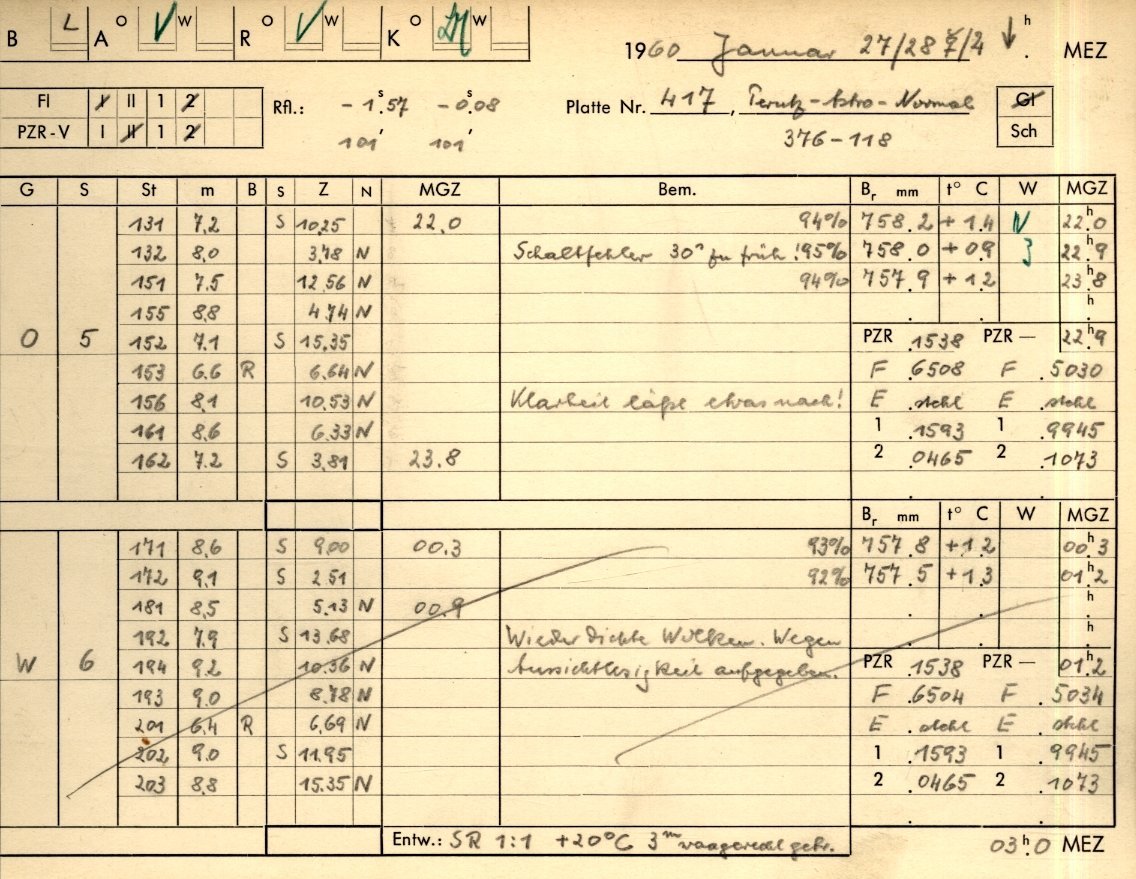 B L A O V W R O V W K O W
1960 Januar 27/28 7/4 h MEZ
Fl I II 1 2
PZR-V I II 1 2
Rfl.: -1s.57 -0s.08
101' 101'
Platte Nr. 417, Perutz-Astro-Normal
376-118
Gl
Sch
G S St m B S Z N MGZ Bem. Br mm t° C W MGZ
131 7.2 S 10.25 22.0 94% 758.2 +1.4 N 22h.0
132 8.0 3.78 N Schaltfehler 30s zu früh! 95% 758.0 +0.9 3 22h.9
151 7.5 12.56 N 94% 757.9 +1.2 23h.8
155 8.8 4.74 N h
O 5 152 7.1 S 15.35 PZR .1538 PZR — 22h.9
153 6.6 R 6.64 N F .6508 F .5030
156 8.1 10.53 N Klarheit läßt etwas nach! E .steht E .steht
161 8.6 6.33 N 1 .1593 1 .9945
162 7.2 S 3.81 23.8 2 .0465 2 .1073
Br mm t° C W MGZ
171 8.6 S 9.00 00.3 93% 757.8 +1.2 00h.3
172 9.1 S 2.51 92% 757.5 +1.3 01h.2
181 8.5 5.13 N 00.9 h
192 7.9 S 13.68 Wieder dichte Wolken. Wegen h
W 6 194 9.2 10.36 N Aussichtlosigkeit aufgegeben. PZR .1538 PZR — 01h.2
193 9.0 8.78 N F .6504 F .5034
201 6.4 R 6.69 N E .steht E .steht
202 9.0 S 11.95 1 .1593 1 .9945
203 8.8 15.35 N 2 .0465 2 .1073
Entw.: SR 1:1 +20°C 3m waagerecht getr. 03h.0 MEZ